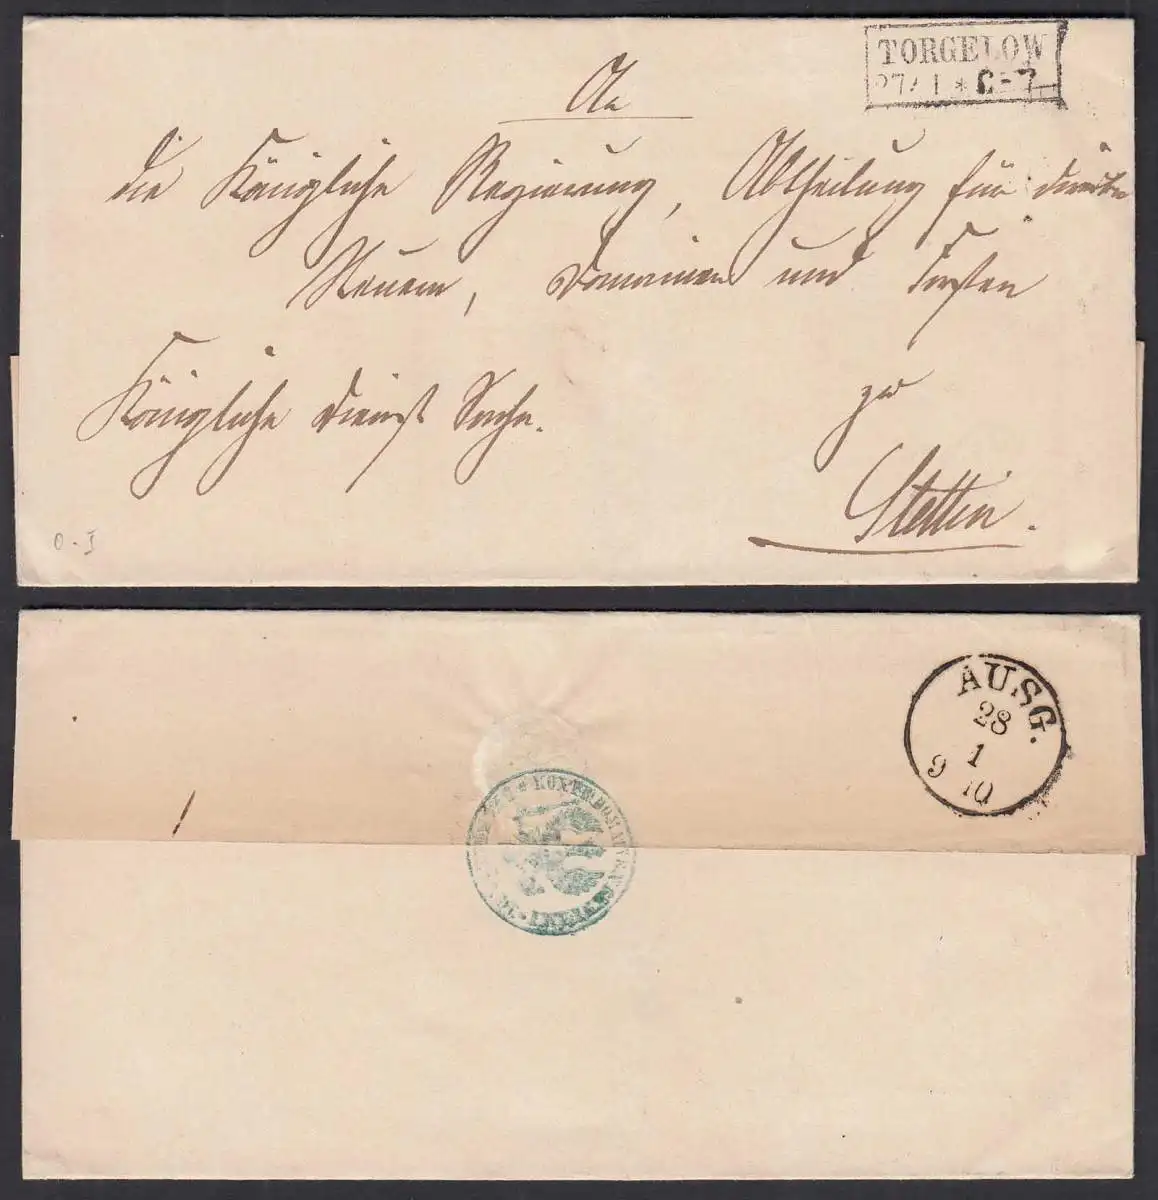 TORGELOW
27/1 * 6-7
An
die Königliche Regierung, Abtheilung für directe
Steuern, Domainen und Forsten
Königliche Dienst Sache.
zu
Stettin.
0-I
AUSG.
28
1
9 10